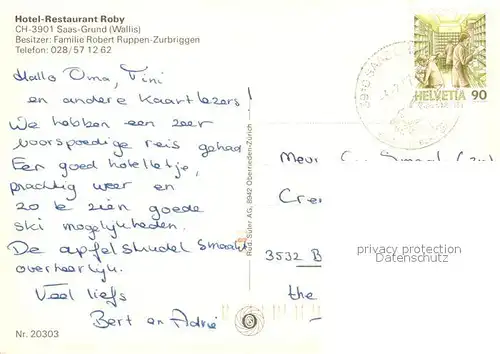 Hotel-Restaurant Roby
CH-3901 Saas-Grund (Wallis)
Besitzer: Familie Robert Ruppen-Zurbriggen
Telefon: 028/57 12 62
Hallo Oma, Tini
en andere Kaartlezers!
We hebben een zeer
voorspoedige reis gehad
Een goed hotelletje,
prachtig weer en
zo te zien goede
ski mogelijkheden.
De apfelstrudel smaakt
overheerlijk.
Veel liefs
Bert en Adrie
Nr. 20303
Rud. Suter AG, 8942 Oberrieden-Zürich
HELVETIA 90
3910 SAAS
Mevr
Cre
3532 B
the
privacy protection
Datenschutz